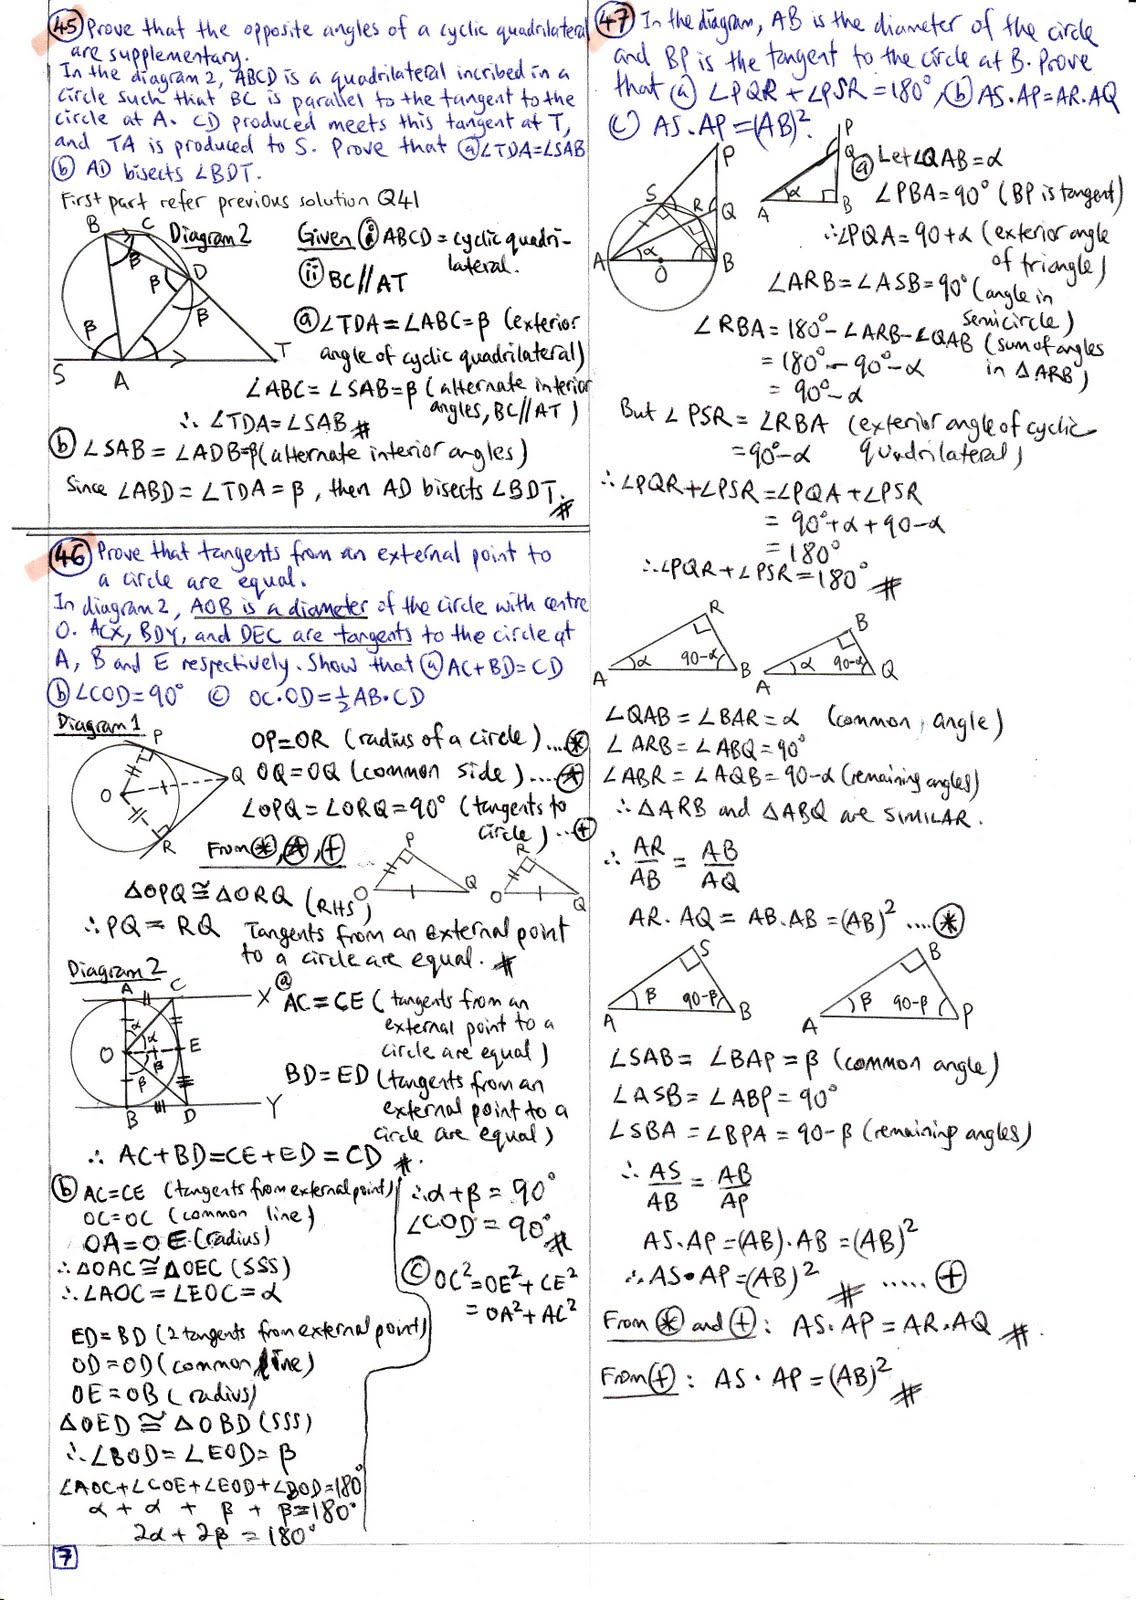 45 Prove that the opposite angles of a cyclic quadrilateral
are supplementary.
In the diagram 2, ABCD is a quadrilateral incribed in a
circle such that BC is parallel to the tangent to the
circle at A. CD produced meets this tangent at T,
and TA is produced to S. Prove that (a) ∠TDA=∠SAB
(b) AD bisects ∠BDT.
First part refer previous solution Q41
Diagram 2
B C D β β β β S A T
Given (i) ABCD = cyclic quadri-
lateral.
(ii) BC//AT
(a) ∠TDA = ∠ABC = β (exterior
angle of cyclic quadrilateral)
∠ABC = ∠SAB = β (alternate interior
angles, BC//AT)
∴ ∠TDA = ∠SAB #
(b) ∠SAB = ∠ADB = β (alternate interior angles)
Since ∠ABD = ∠TDA = β, then AD bisects ∠BDT. #
46 Prove that tangents from an external point to
a circle are equal.
In diagram 2, AOB is a diameter of the circle with centre
O. ACX, BDY, and DEC are tangents to the circle at
A, B and E respectively. Show that (a) AC+BD=CD
(b) ∠COD=90° (c) OC·OD=½AB·CD
Diagram 1
P O Q R
OP=OR (radius of a circle)....(*)
OQ=OQ (common side)....(★)
∠OPQ=∠ORQ=90° (tangents to
circle)...(+)
From (*), (★), (+)
P O Q R O Q
△OPQ ≅ △ORQ (RHS)
∴ PQ = RQ Tangents from an external point
to a circle are equal. #
Diagram 2
A C X O α α E β β B D Y
(a) AC = CE (tangents from an
external point to a
circle are equal)
BD=ED (tangents from an
external point to a
circle are equal)
∴ AC+BD=CE+ED=CD #.
(b) AC=CE (tangents from external point)
OC=OC (common line)
OA=OE (radius)
∴ △OAC ≅ △OEC (SSS)
∴ ∠AOC = ∠EOC = α
ED=BD (2 tangents from external point)
OD=OD (common line)
OE=OB (radius)
△OED ≅ △OBD (SSS)
∴ ∠BOD = ∠EOD = β
∠AOC+∠COE+∠EOD+∠BOD=180°
α + α + β + β=180°
2α + 2β = 180°
∴ α + β = 90°
∠COD = 90° #
(c) OC²=OE²+CE²
= OA²+AC²
7
47 In the diagram, AB is the diameter of the circle
and BP is the tangent to the circle at B. Prove
that (a) ∠PQR+∠PSR=180°, (b) AS.AP=AR.AQ
(c) AS.AP=(AB)².
P S R Q A α O B
P Q A α B
(a) Let ∠QAB=α
∠PBA=90° (BP is tangent)
∴ ∠PQA=90+α (exterior angle
of triangle)
∠ARB=∠ASB=90° (angle in
semicircle)
∠RBA = 180°-∠ARB-∠QAB (sum of angles
in △ARB)
= 180°-90°-α
= 90°-α
But ∠PSR = ∠RBA (exterior angle of cyclic
quadrilateral)
=90°-α
∴ ∠PQR+∠PSR=∠PQA+∠PSR
= 90°+α+90-α
= 180°
∴ ∠PQR+∠PSR=180° #
R A α 90-α B
B A α 90-α Q
∠QAB = ∠BAR = α (common angle)
∠ARB = ∠ABQ = 90°
∠ABR = ∠AQB = 90-α (remaining angles)
∴ △ARB and △ABQ are SIMILAR.
∴ AR/AB = AB/AQ
AR.AQ = AB.AB = (AB)² ....(*)
S A β 90-β B
B A β 90-β P
∠SAB = ∠BAP = β (common angle)
∠ASB = ∠ABP = 90°
∠SBA = ∠BPA = 90-β (remaining angles)
∴ AS/AB = AB/AP
AS.AP = (AB).AB = (AB)²
∴ AS.AP = (AB)² # .....(+)
From (*) and (+): AS.AP = AR.AQ #.
From (+): AS.AP = (AB)² #